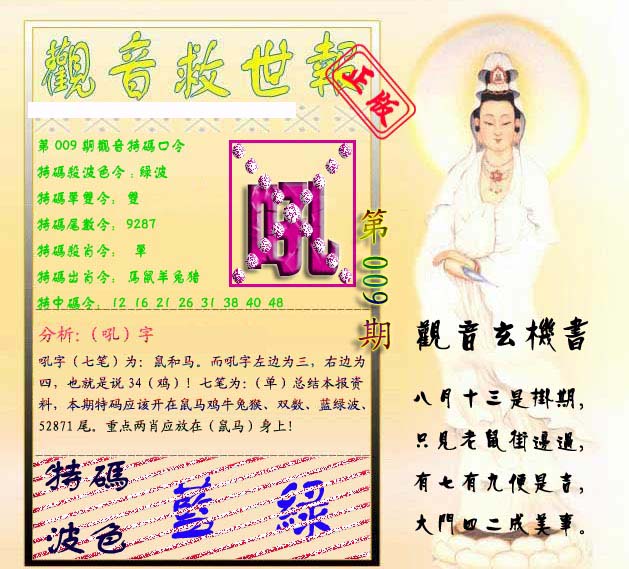 觀音救世報
正版
第009期觀音特碼口令
特碼殺波色令:綠波
特碼單雙令: 雙
特碼尾數令: 9287
特碼殺肖令: 單
特碼出肖令: 馬鼠羊兔豬
特中碼令: 12 16 21 26 31 38 40 48
吼
第009期
分析:(吼)字
吼字(七笔)为: 鼠和马。而吼字左边为三, 右边为
四, 也就是说34(鸡)! 七笔为:(单)总结本报资
料, 本期特码应该开在鼠马鸡牛兔猴、双数、蓝绿波、
52871尾。重点两肖应放在(鼠马)身上!
特碼
波色
藍 綠
觀音玄機書
八月十三是掛期,
只見老鼠街邊過,
有七有九便是吉,
大門四二成美事。